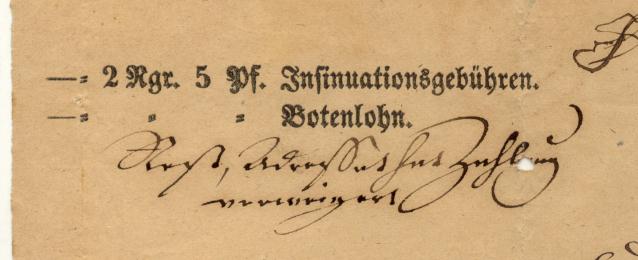 —= 2 Ngr. 5 Pf. Insinuationsgebühren.
—= " = Botenlohn.
Rest, Adressat hat Zahlung
verweigert